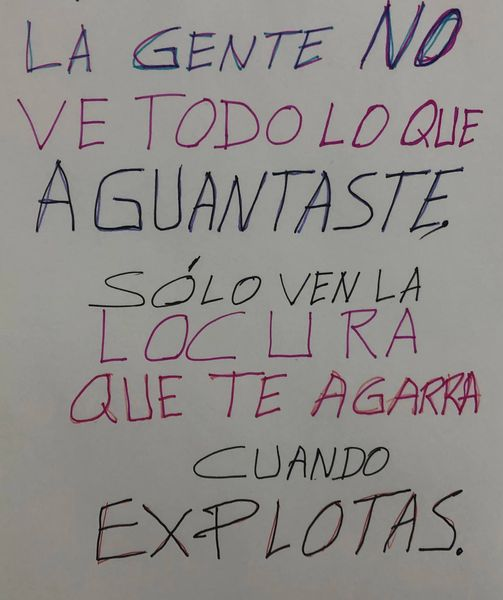 LA GENTE NO
VE TODO LO QUE
AGUANTASTE,
SÓLO VEN LA
LOCURA
QUE TE AGARRA
CUANDO
EXPLOTAS.